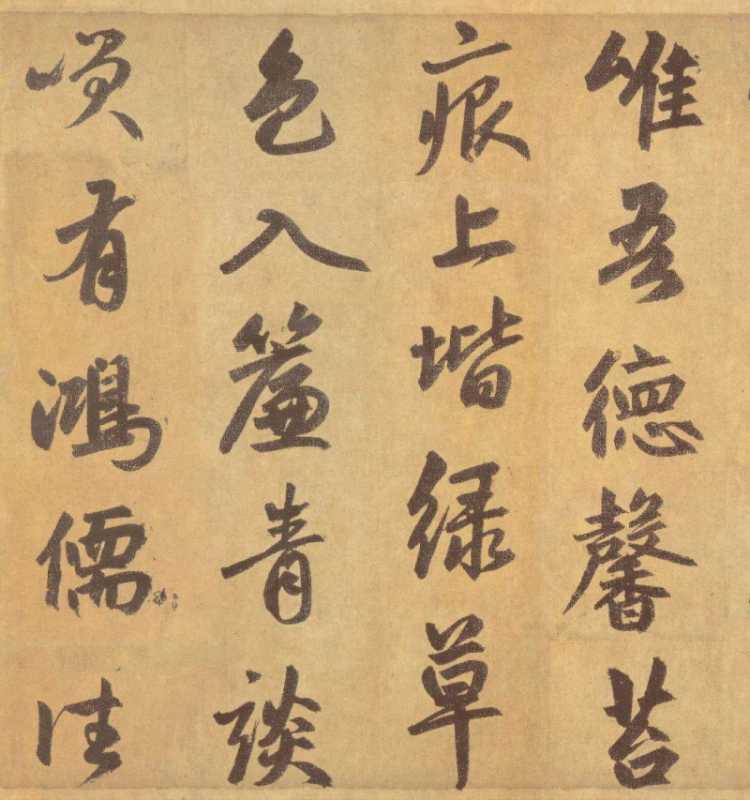 唯吾德馨苔
痕上堦綠草
色入簾青談
咲有鴻儒往